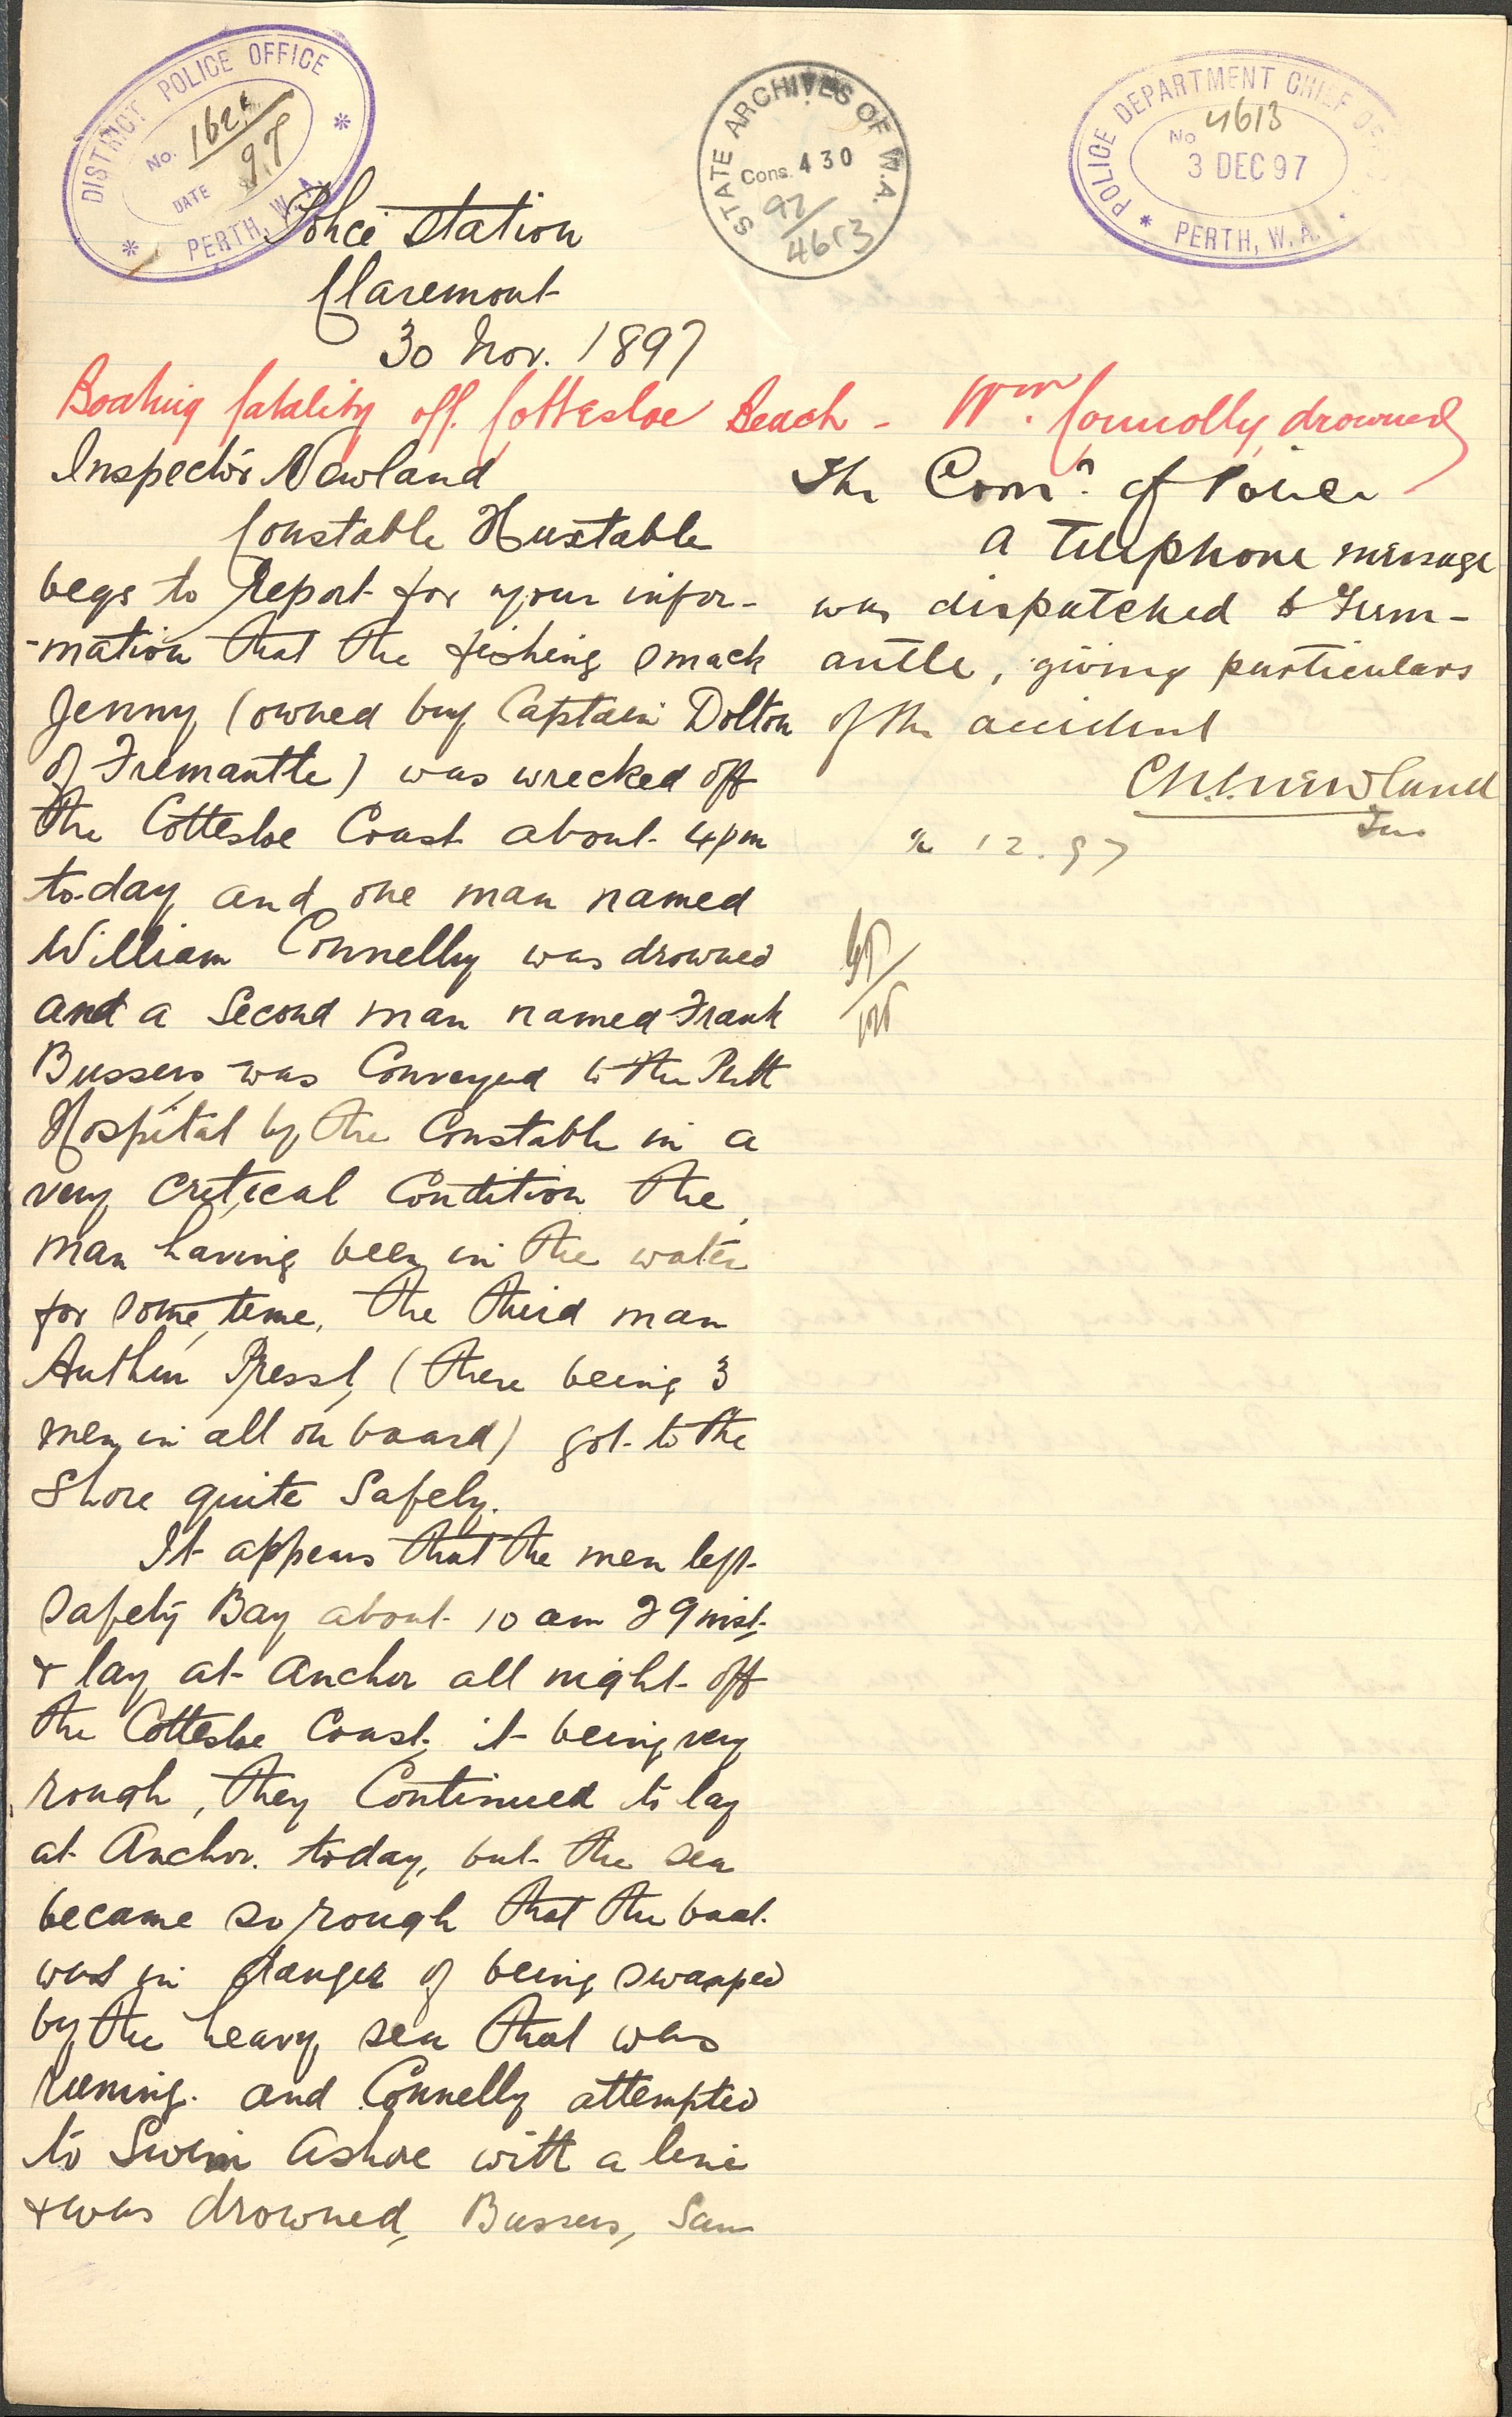 DISTRICT POLICE OFFICE
No. 162
DATE 97
PERTH, W.A.
STATE ARCHIVES OF W.A.
Cons. 430
97/4613
POLICE DEPARTMENT CHIEF
No 4613
3 DEC 97
PERTH, W.A.
Police Station
Claremont
30 Nov. 1897
Boating fatality off Cottesloe Beach - Wm. Connolly drowned
Inspector Newland
Constable Huxtable
begs to Report for your infor-
-mation that the fishing smack
Jenny (owned by Captain Dolton
of Fremantle) was wrecked off
the Cottesloe Coast about 4pm
to-day and one man named
William Connelly was drowned
and a Second man named Frank
Bussers was Conveyed to the Perth
Hospital by the Constable in a
very Critical Condition the
man having been in the water
for some time, the third man
Authur Pressl, (there being 3
men in all on board) got to the
Shore quite Safely.
It appears that the men left
Safety Bay about 10 am 29 inst
& lay at Anchor all night off
the Cottesloe Coast, it being very
rough, they Continued to lay
at Anchor. today, but the sea
became so rough that the boat
was in danger of being swamped
by the heavy sea that was
runing. and Connelly attempted
to Swim Ashore with a line
& was drowned, Bussers, Saw
The Comr. of Police
A Telephone message
was dispatched to Frem-
antle, giving particulars
of the accident
Newland
12.97